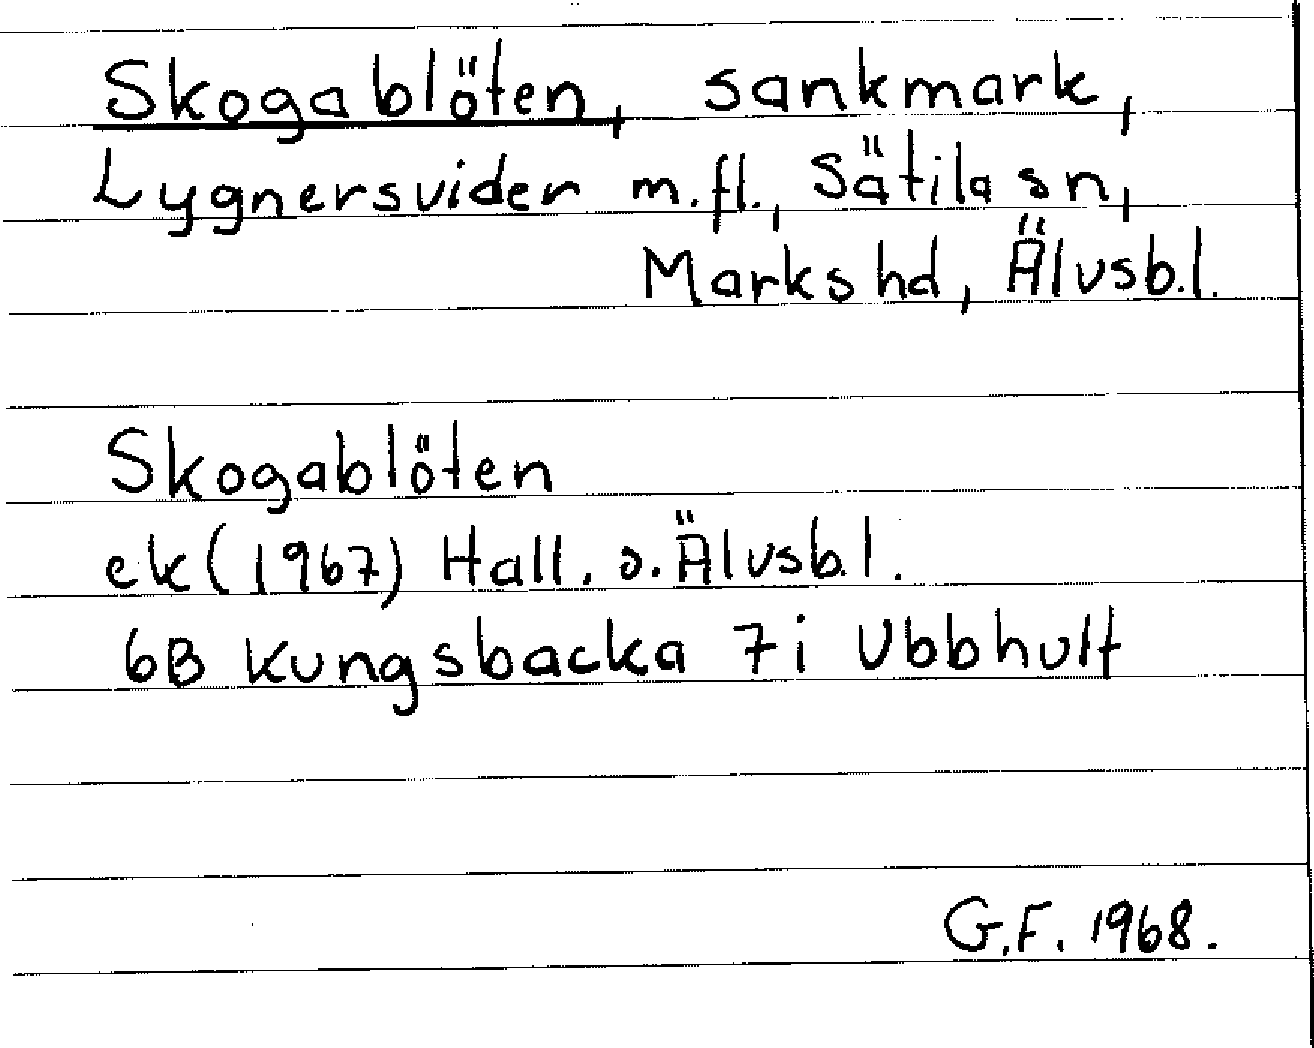 Skogablöten, sankmark,
Lygnersvider m.fl., Sätila sn,
Marks hd, Älvsb.l.
Skogablöten
ek (1967) Hall. o. Älvsb.l.
6B Kungsbacka 7i Ubbhult
G.F. 1968.